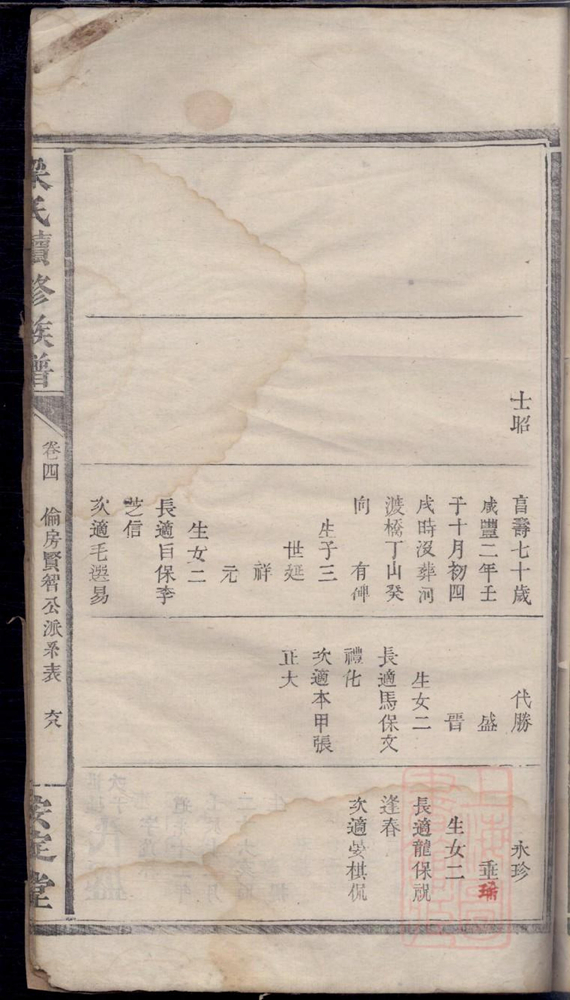 士昭
亯壽七十歲
咸豐二年壬
子十月初四
戌時沒葬河
渡橋丁山癸
向 有碑
生子三
世延
祥
元
生女二
長適白保李
芝信
次適毛選易
代勝
盛
晉
生女二
長適馬保文
禮化
次適本甲張
正大
永珍
垂瑤
生女二
長適龍保
逢春
次適晏棋侃
氏續修族譜
卷四
倫房賢智公派系表
安定堂